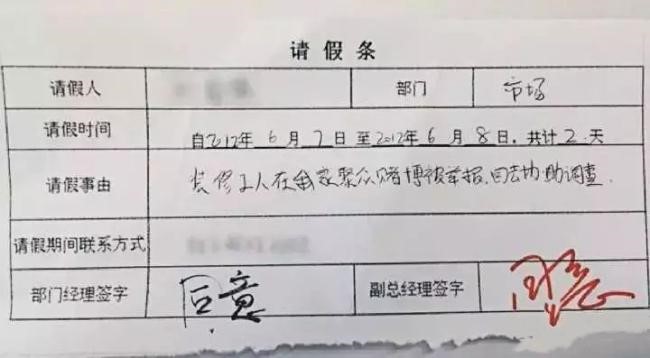 请假条
请假人 部门 市场
请假时间 自2012年6月7日至2012年6月8日.共计2天
请假事由 装修工人在我家聚众赌博被举报.回去协助调查.
请假期间联系方式
部门经理签字 同意 副总经理签字